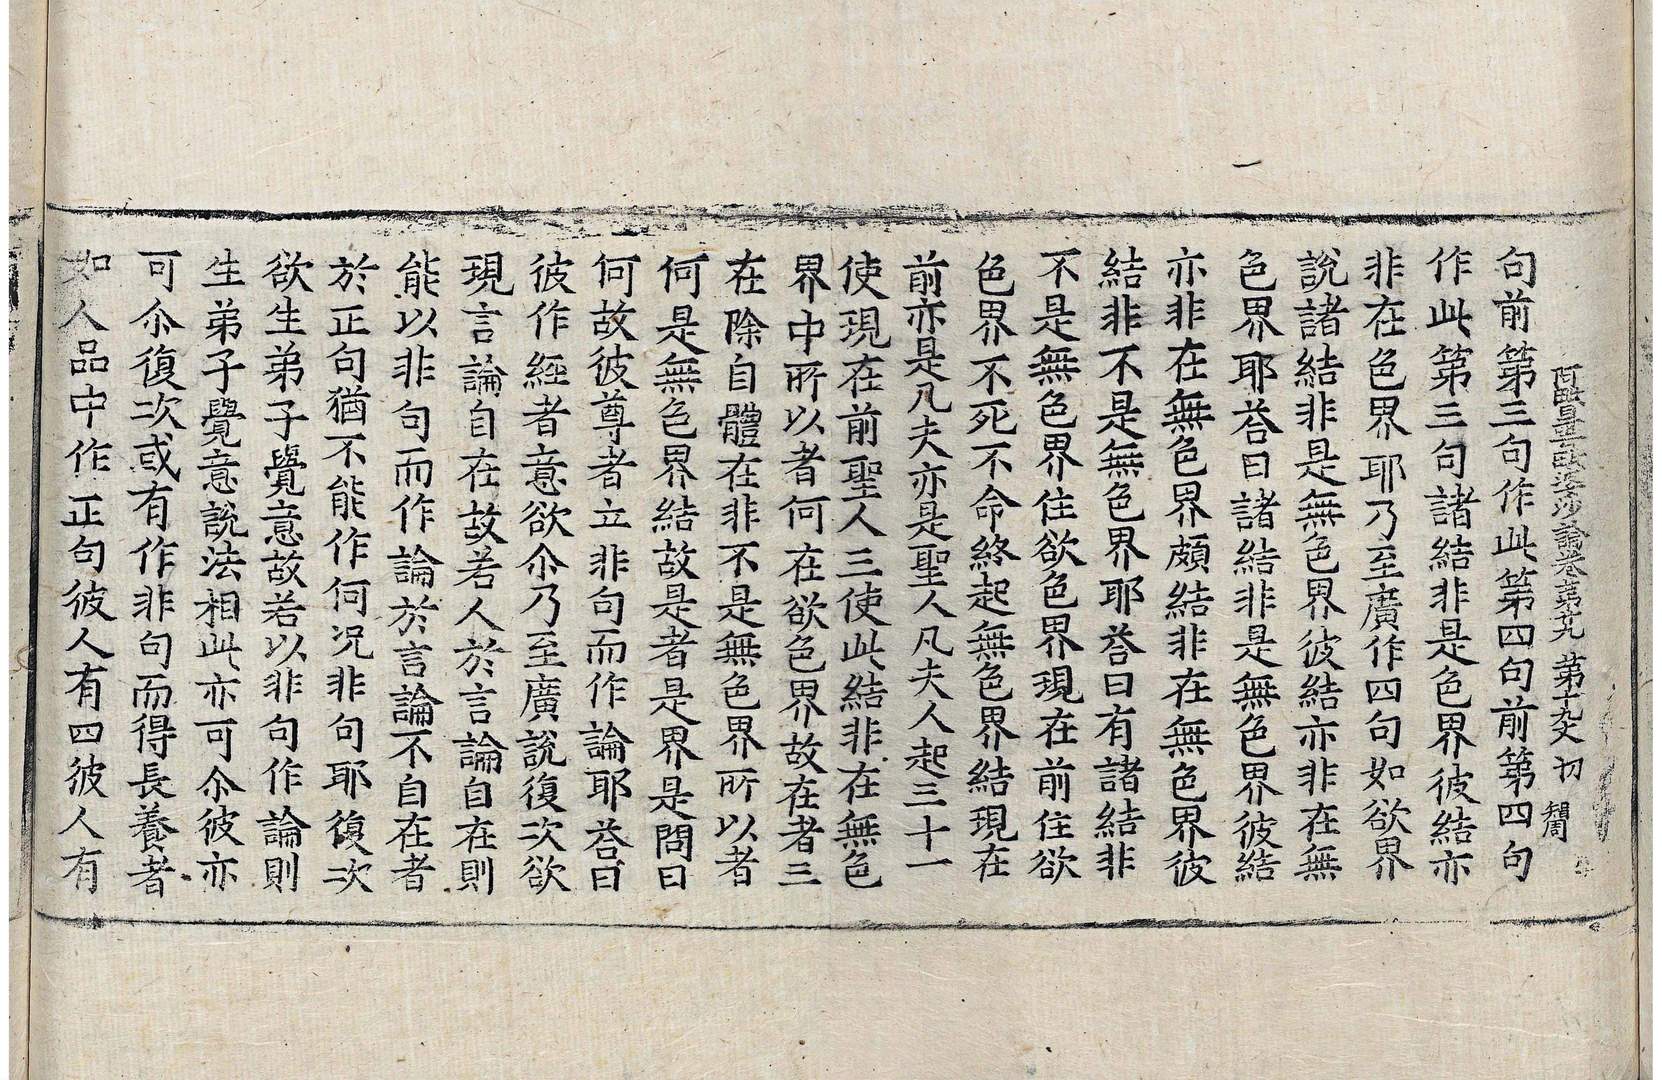 阿毗曇毗婆沙論卷第廿九 第十九丈 切
句前第三句作此第四句前第四句
作此第三句諸結非是色界彼結亦
非在色界耶乃至廣作四句如欲界
說諸結非是無色界彼結亦非在無
色界耶荅曰諸結非是無色界彼結
亦非在無色界頗結非在無色界彼
結非不是無色界耶荅曰有諸結非
不是無色界住欲色界現在前住欲
色界不死不命終起無色界結現在
前亦是凡夫亦是聖人凡夫人起三十一
使現在前聖人三使此結非在無色
界中所以者何在欲色界故在者三
在除自體在非不是無色界所以者
何是無色界結故是者是界是問曰
何故彼尊者立非句而作論耶荅曰
彼作經者意欲尒乃至廣說復次欲
現言論自在故若人於言論自在則
能以非句而作論於言論不自在者
於正句猶不能作何況非句耶復次
欲生弟子覺意故若以非句作論則
生弟子覺意說法相此亦可尒彼亦
可尒復次或有作非句而得長養者
如人品中作正句彼人有四彼人有